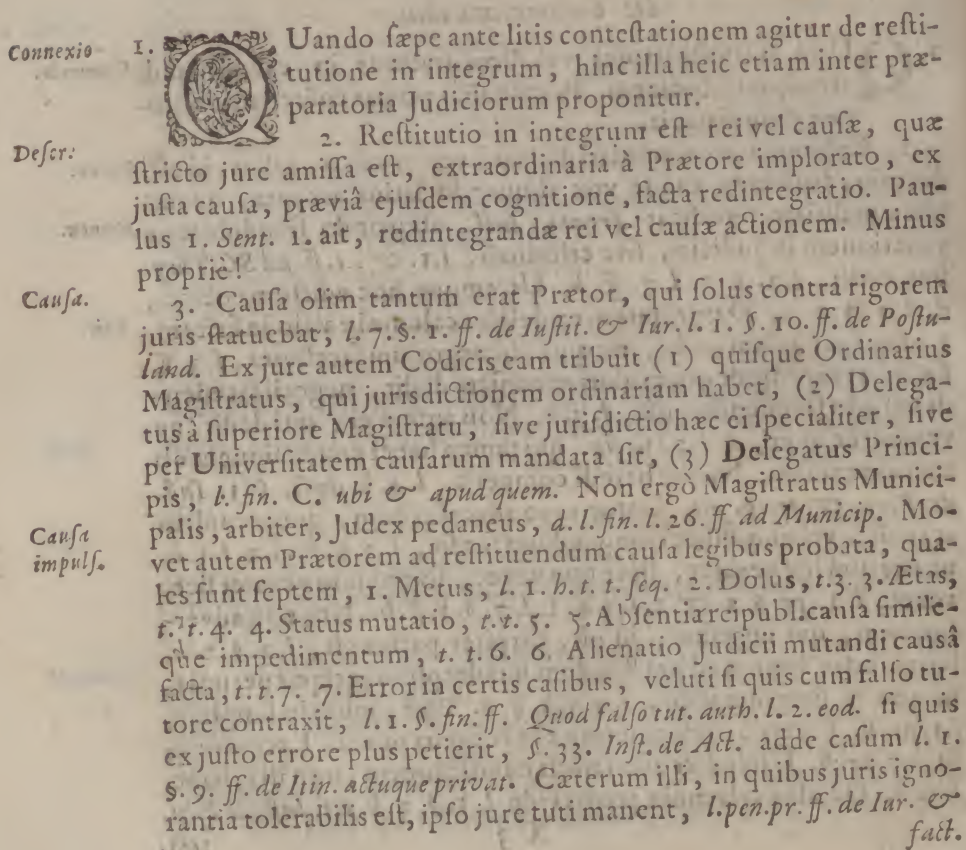 Connexio
1. QUando ſæpe ante litis conteſtationem agitur de reſti-
tutione in integrum, hinc illa heic etiam inter præ-
paratoria Judiciorum proponitur.
Deſcr:
2. Reſtitutio in integrum eſt rei vel cauſæ, quæ
ſtricto jure amiſſa eſt, extraordinaria à Prætore implorato, ex
juſta cauſa, præviâ ejuſdem cognitione, facta redintegratio. Pau-
lus 1. Sent. 1. ait, redintegrandæ rei vel cauſæ actionem. Minus
propriè!
Cauſa.
3. Cauſa olim tantum erat Prætor, qui ſolus contra rigorem
juris ſtatuebat, l. 7. §. 1. ff. de Iuſtit. & Iur. l. 1. §. 10. ff. de Poſtu-
land. Ex jure autem Codicis eam tribuit (1) quiſque Ordinarius
Magiſtratus, qui jurisdictionem ordinariam habet, (2) Delega-
tus à ſuperiore Magiſtratu, ſive juriſdictio hæc ei ſpecialiter, ſive
per Univerſitatem cauſarum mandata ſit, (3) Delegatus Princi-
pis, l. fin. C. ubi & apud quem. Non ergò Magiſtratus Munici-
Cauſa
impulſ.
palis, arbiter, Judex pedaneus, d. l. fin. l. 26. ff ad Municip. Mo-
vet autem Prætorem ad reſtituendum cauſa legibus probata, qua-
les ſunt ſeptem, 1. Metus, l. 1. h. t. t. ſeq. 2. Dolus, t. 3. 3. Ætas,
t. t. 4. 4. Status mutatio, t. t. 5. 5. Abſentia reipubl. cauſa ſimile-
que impedimentum, t. t. 6. 6 Alienatio Judicii mutandi causâ
facta, t. t. 7. 7. Error in certis caſibus, veluti ſi quis cum falſo tu-
tore contraxit, l. 1. §. fin. ff. Quod falſo tut. auth. l. 2. eod. ſi quis
ex juſto errore plus petierit, §. 33. Inſt. de Act. adde caſum l. 1.
§. 9. ff. de Itin. actuque privat. Cæterum illi, in quibus juris igno-
rantia tolerabilis eſt, ipſo jure tuti manent, l. pen. pr. ff. de Iur. &
fact.